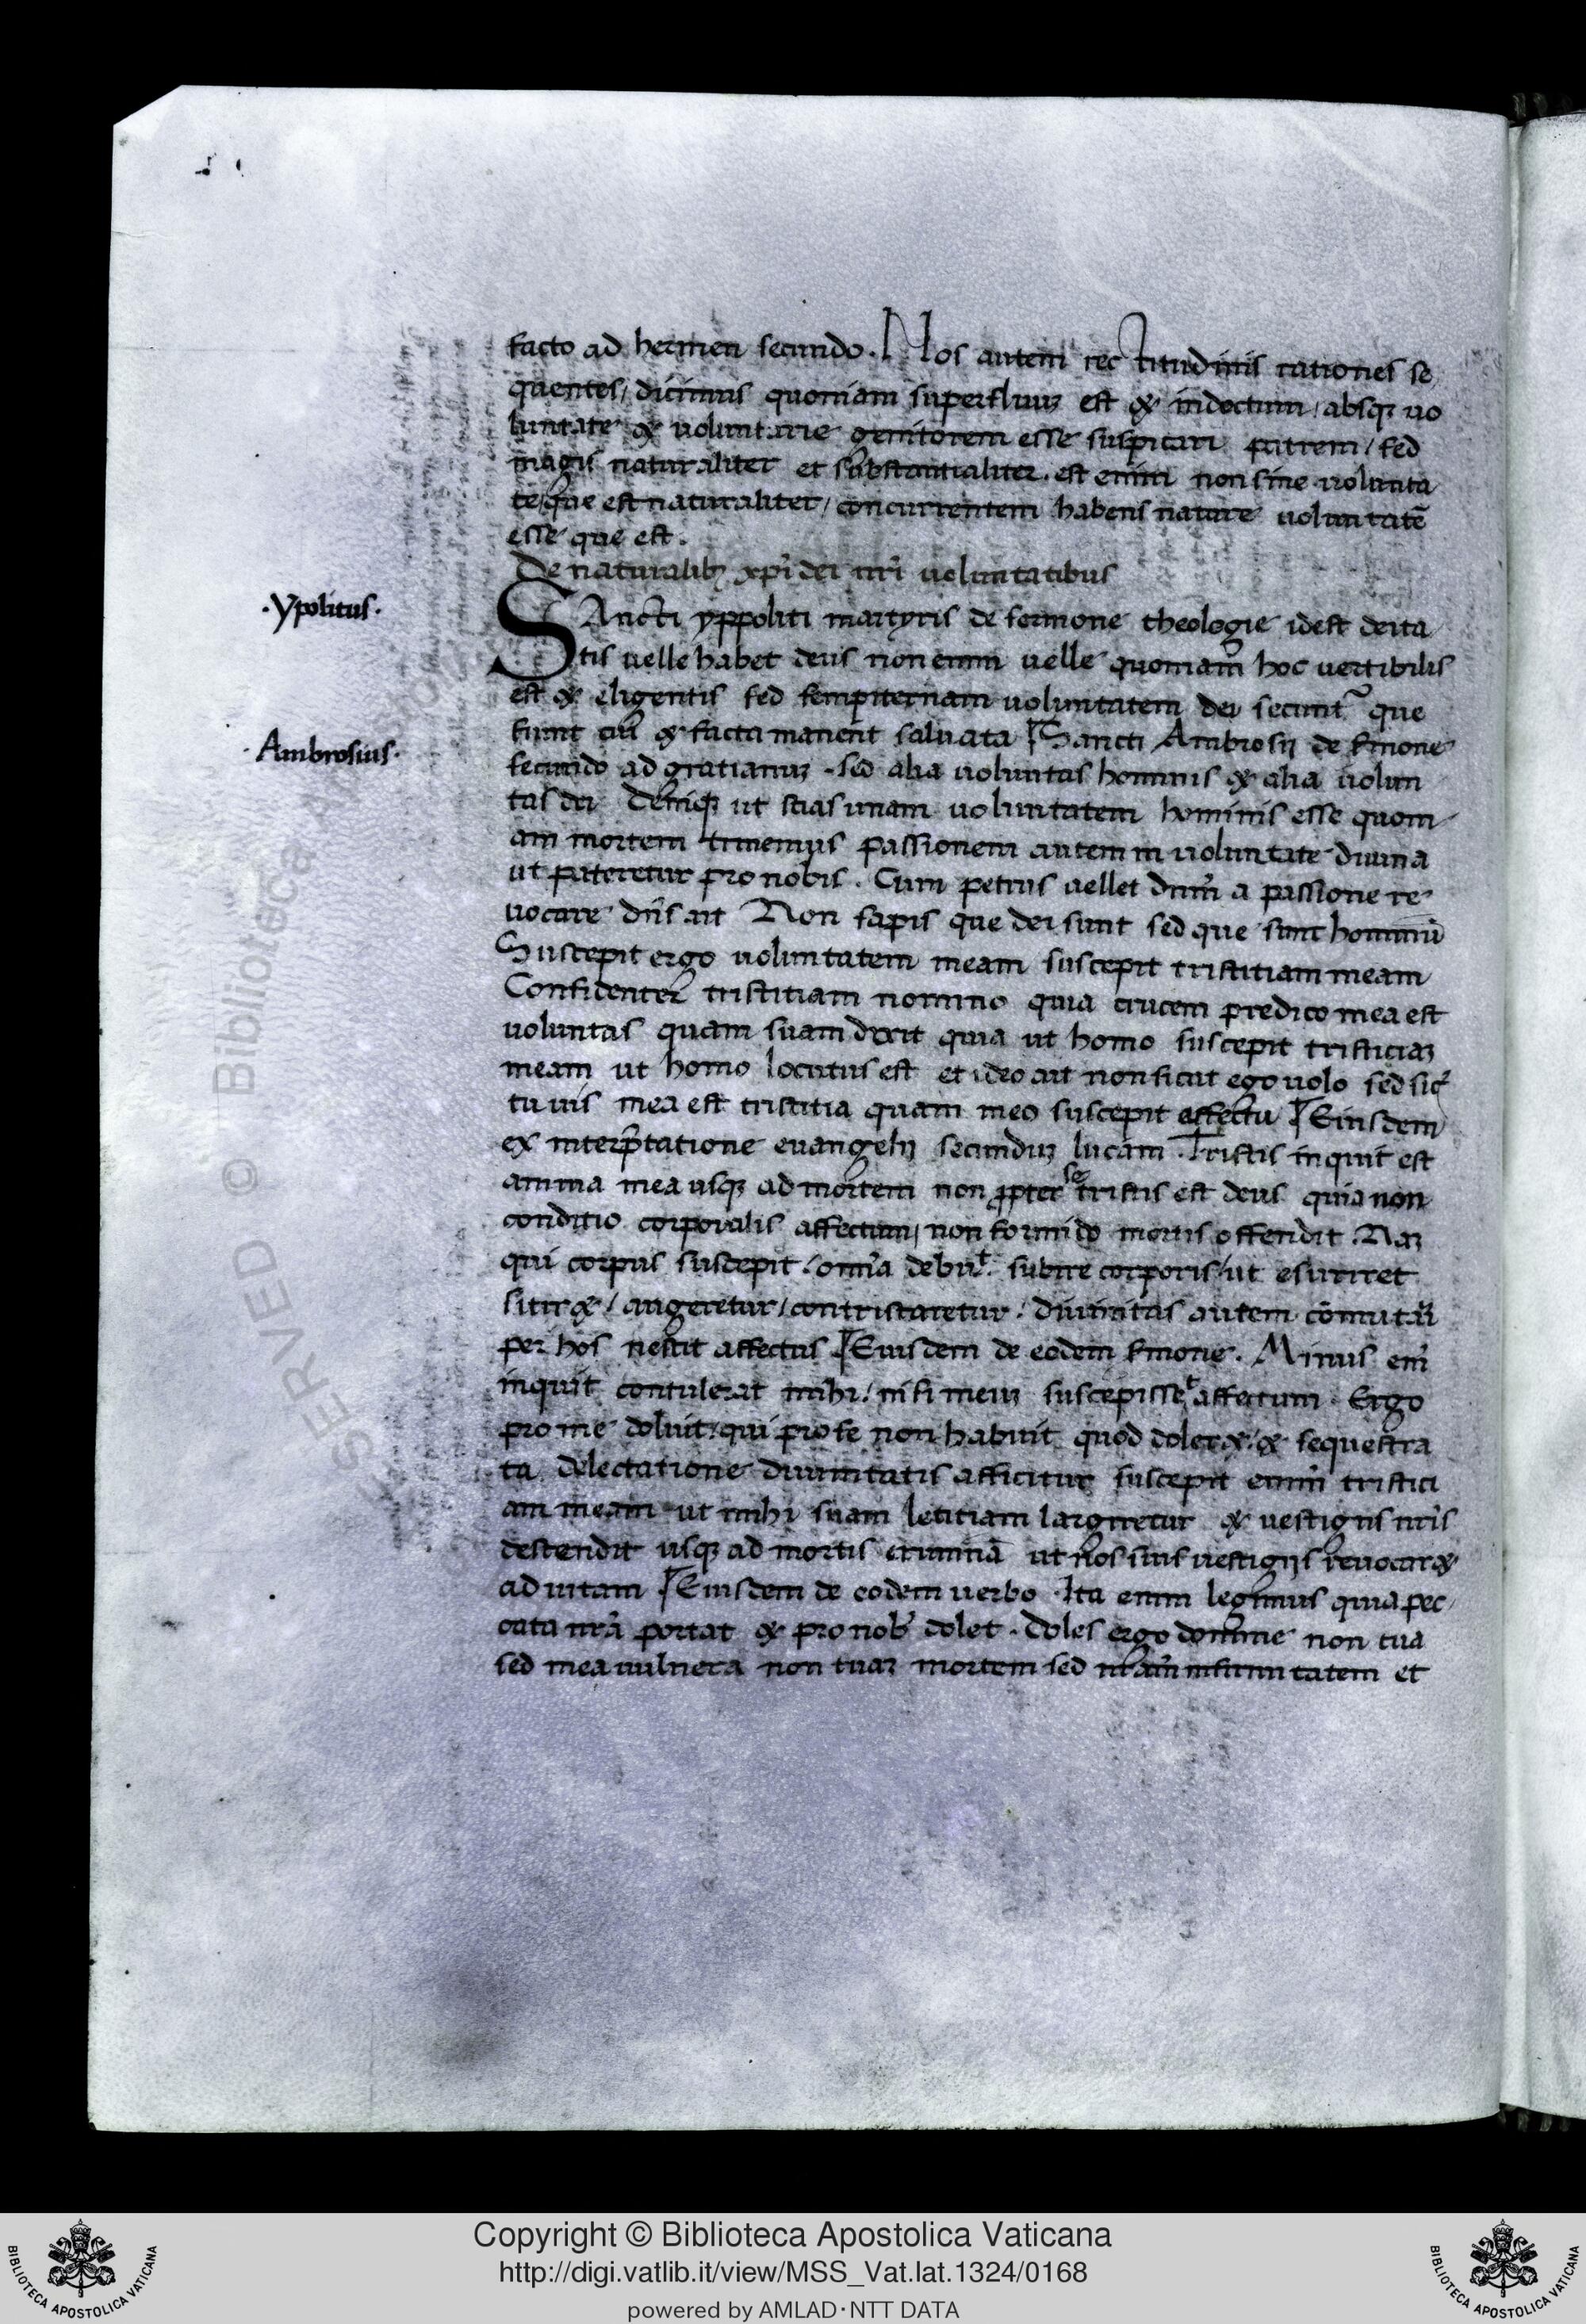 facto ad hermen secundo. Nos autem rectitudinis rationes se
quentes/ dicimus quoniam superfluuꝫ est & indoctum/ absqꝫ uo
luntate & uoluntarie genitorem esse suspicari patrem/ sed
magis naturaliter et substantialiter. est enim non sine uolunta
te/ que est naturaliter/ concurrentem habens nature uoluntatē
esse que est.
De naturalibꝫ xp̄i dei nr̄i uoluntatibus
·Ypolitus·
SAncti yppoliti martyris de sermone theologie idest deita
tis uelle habet deus non enim uelle quoniam hoc uertibilis
est & eligentis sed sempiternam uoluntatem dei secunt᷑ que
fiunt & facta manent saluata Sancti Ambrosij de ẜmone
·Ambrosius·
secundo ad gratianuꝫ · sed alia uoluntas hominis & alia uolun
tas dei deniqꝫ ut scias unam uoluntatem hominis esse quoni
am mortem timemus passionem autem in uoluntate diuina
ut pateretur pro nobis. Cum petrus uellet dnm̄ a passione re
uocare dn̄s ait Non sapis que dei sunt sed que sunt hominū
Suscepit ergo uoluntatem meam suscepit tristitiam meam
Confidenter tristitiam nomino quia crucem predico mea est
uoluntas quam suam dixit quia ut homo suscepit tristiciaꝫ
meam ut homo locutus est et ideo ait non sicut ego uolo sed sic̄
tu uis mea est tristitia quam meo suscepit affectu Eiusdem
ex interp̄tatione euangelij secunduꝫ lucam. Tristis inquit est
anima mea usqꝫ ad mortem non ꝓpter se tristis est deus quia non
conditio corporalis affectum/ non formido mortis offendit. Naꝫ
qui corpus suscepit/ omīa debuit subire corporis/ ut esuriret
sitir&/ angeretur/ contristaretur/ Diuinitas autem cōmutari
per hos nescit affectus Eiusdem de eodem ẜmone. Minus eni᷑
inquit contulerat mihi/ nisi meuꝫ suscepisset affectum. Ergo
pro me doluit/ qui pro se non habuit quod doler&/ & sequestra
ta delectatione diuinitatis afficitur suscepit enim tristici
am meam ut mihi suam letitiam largiretur & uestigiis nr̄is
descendit usqꝫ ad mortis erumnā ut nos suis uestigijs reuocar&
ad uitam Eiusdem de eodem uerbo. Ita enim legimus quia pec
cata nr̄a portat & pro nob᷑ dolet. doles ergo domine non tua
sed mea uulnera non tuaꝫ mortem sed nr̄am infirmitatem et
Copyright © Biblioteca Apostolica Vaticana
http://digi.vatlib.it/view/MSS_Vat.lat.1324/0168
powered by AMLAD·NTT DATA
BIBLIOTECA APOSTOLICA VATICANA
BIBLIOTECA APOSTOLICA VATICANA